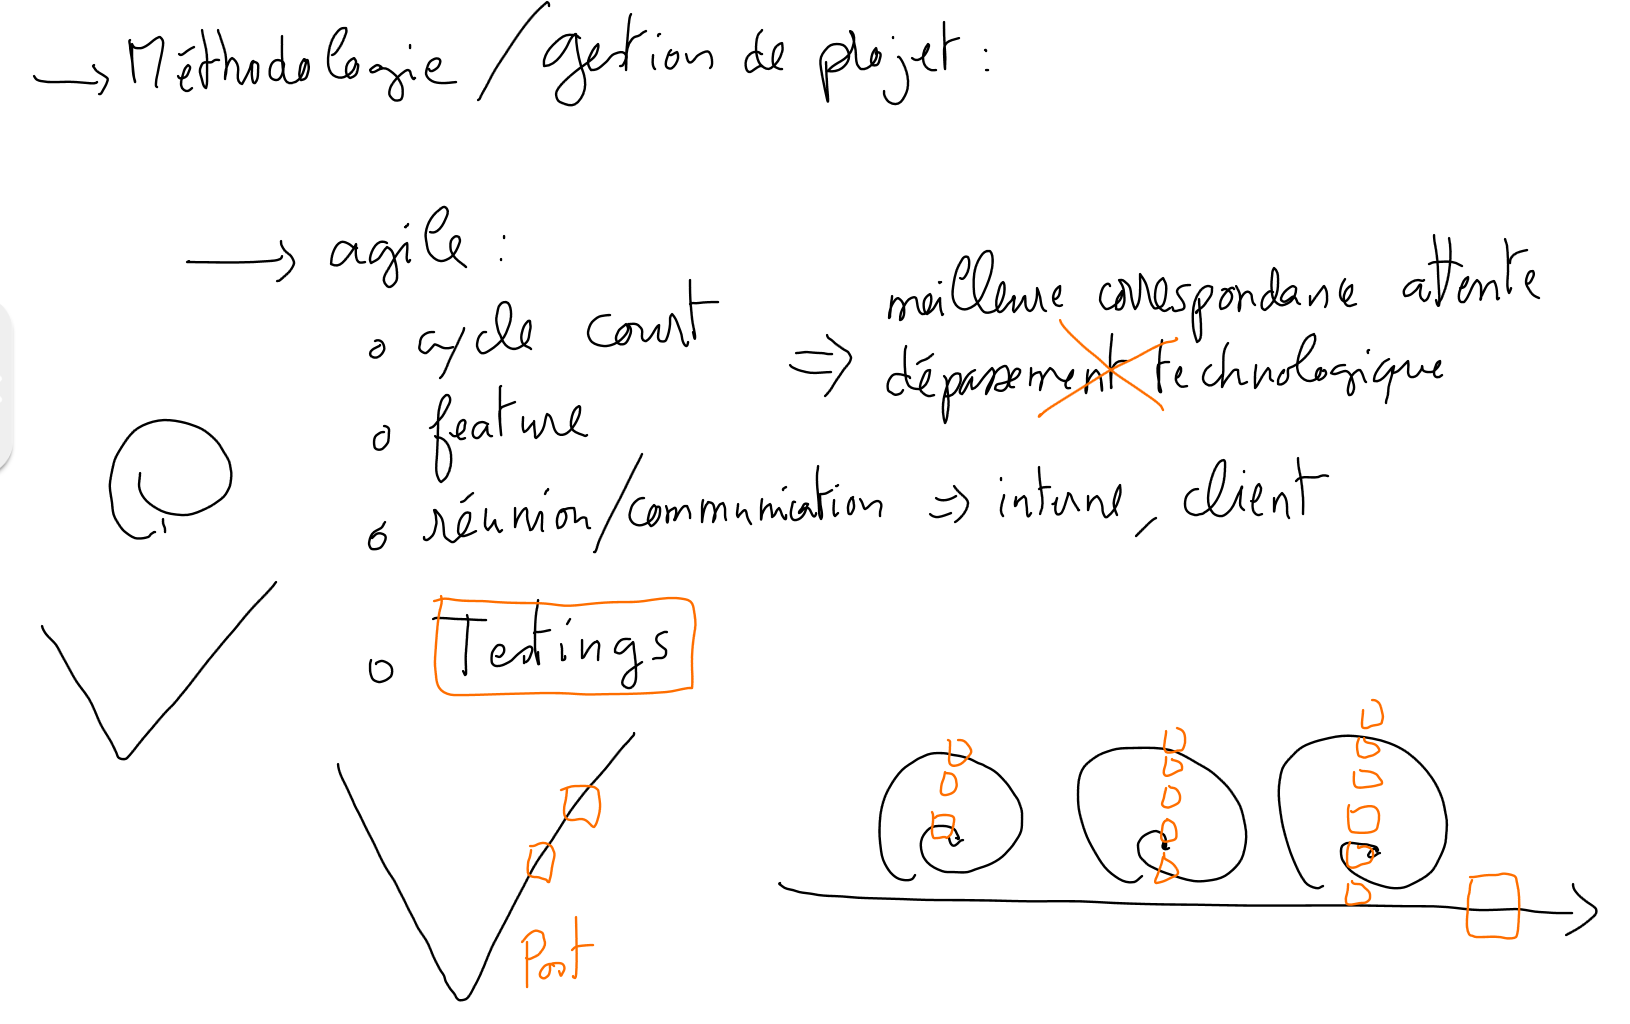 → Méthodologie / gestion de projet :
→ agile :
o cycle court
⇒ meilleure correspondance attente
dépassement technologique
o feature
o réunion/communication ⇒ interne, client
o Testings
Post